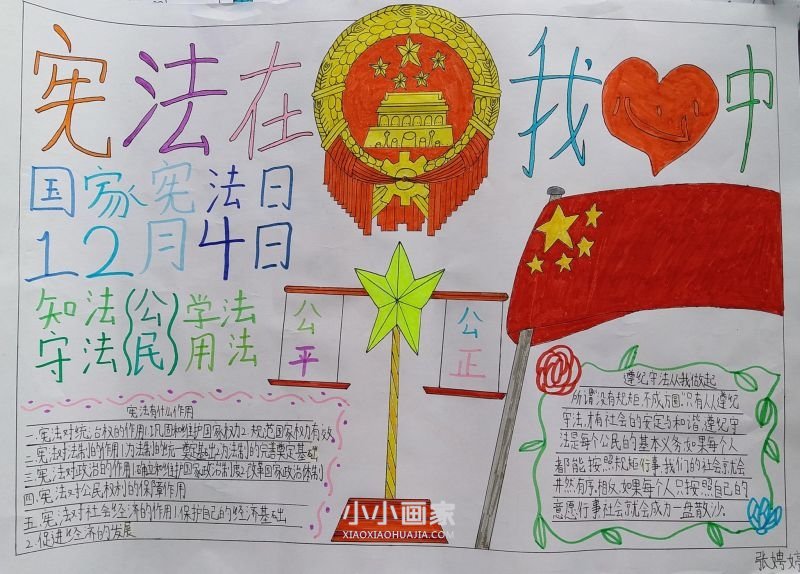 宪法在我中
国家宪法日
12月4日
知法 公 学法
守法 民 用法
公平
公正
宪法有什么作用
一.宪法对统治权的作用:1.巩固和维护国家权力2.规范国家权力有效
二.宪法对法制的作用1.为法制的统一奠定基础2.为法制的完善奠定基础
三.宪法对政治的作用1.确立和维护国家政治制度2.改革国家政治体制
四.宪法对公民权利的保障作用
五.宪法对社会经济的作用1.保护自己的经济基础
2.促进经济的发展
遵纪守法从我做起
所谓"没有规矩,不成方圆."只有人人遵纪
守法,才有社会的安定与和谐.遵纪守
法是每个公民的基本义务,如果每个人
都能按照规矩行事,我们的社会就会
井然有序,相反,如果每个人只按照自己的
意愿行事社会就会成为一盘散沙.
小小画家
XIAOXIAOHUAJIA.COM
张娉婷